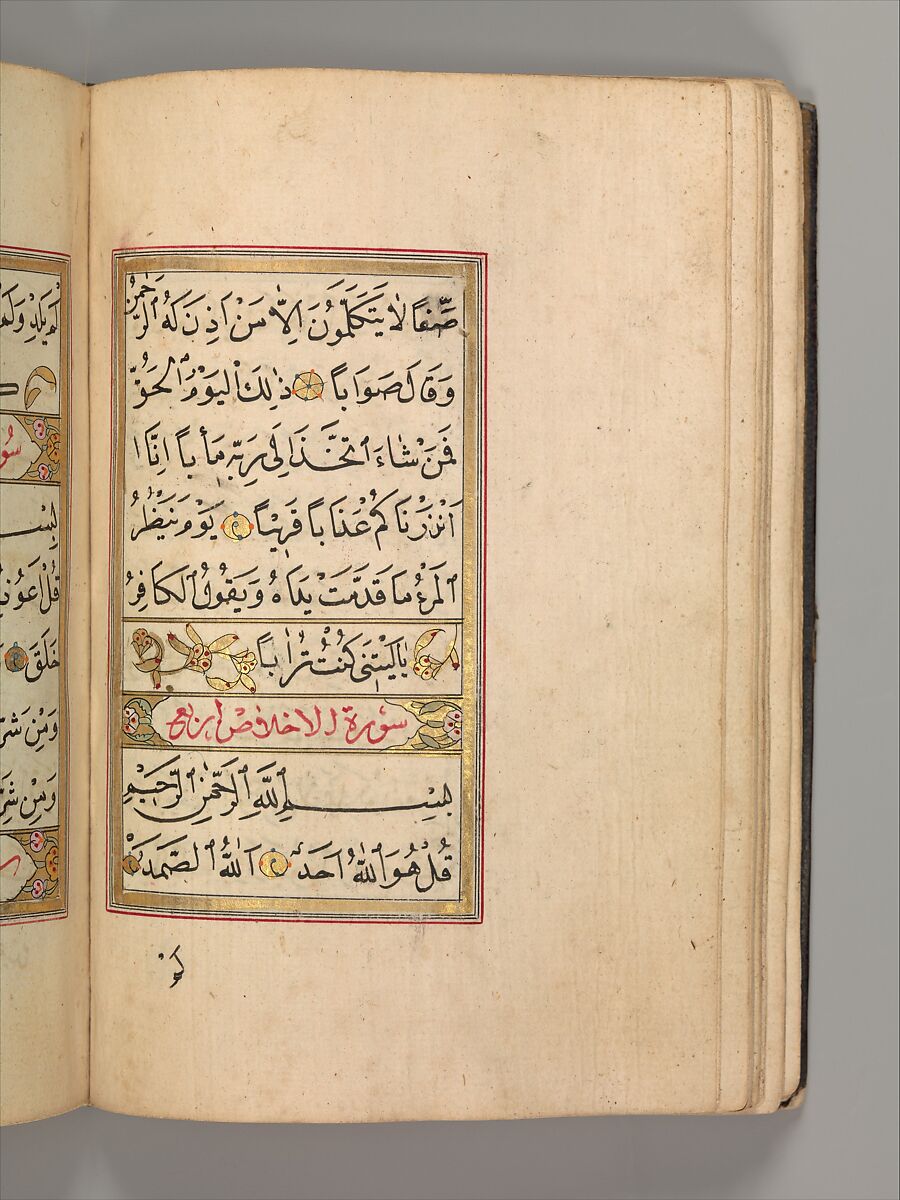 صَفًّا لَا يَتَكَلَّمُونَ اِلَّا مَنْ اَذِنَ لَهُ ٱلرَّحْمٰنُ
وَقَالَ صَوَابًا ذٰلِكَ ٱلْيَوْمُ ٱلْحَقُّ
فَمَنْ شَاءَ ٱتَّخَذَ اِلٰى رَبِّهِ مَأٰبًا اِنَّا
اَنْذَرْنَاكُمْ عَذَابًا قَرِيبًا يَوْمَ يَنْظُرُ
ٱلْمَرْءُ مَا قَدَّمَتْ يَدَاهُ وَيَقُولُ ٱلْكَافِرُ
يَالَيْتَنِى كُنْتُ تُرَابًا
سورة الاخلاص اربع
بِسْمِ ٱللّٰهِ ٱلرَّحْمٰنِ ٱلرَّحِيمِ
قُلْ هُوَ ٱللّٰهُ اَحَدٌ اَللّٰهُ ٱلصَّمَدُ
لَمْ
لَمْ يَلِدْ وَلَمْ
قُلْ اَعُوذُ
خَلَقَ
وَمِنْ شَرِّ
وَمِنْ شَرِّ